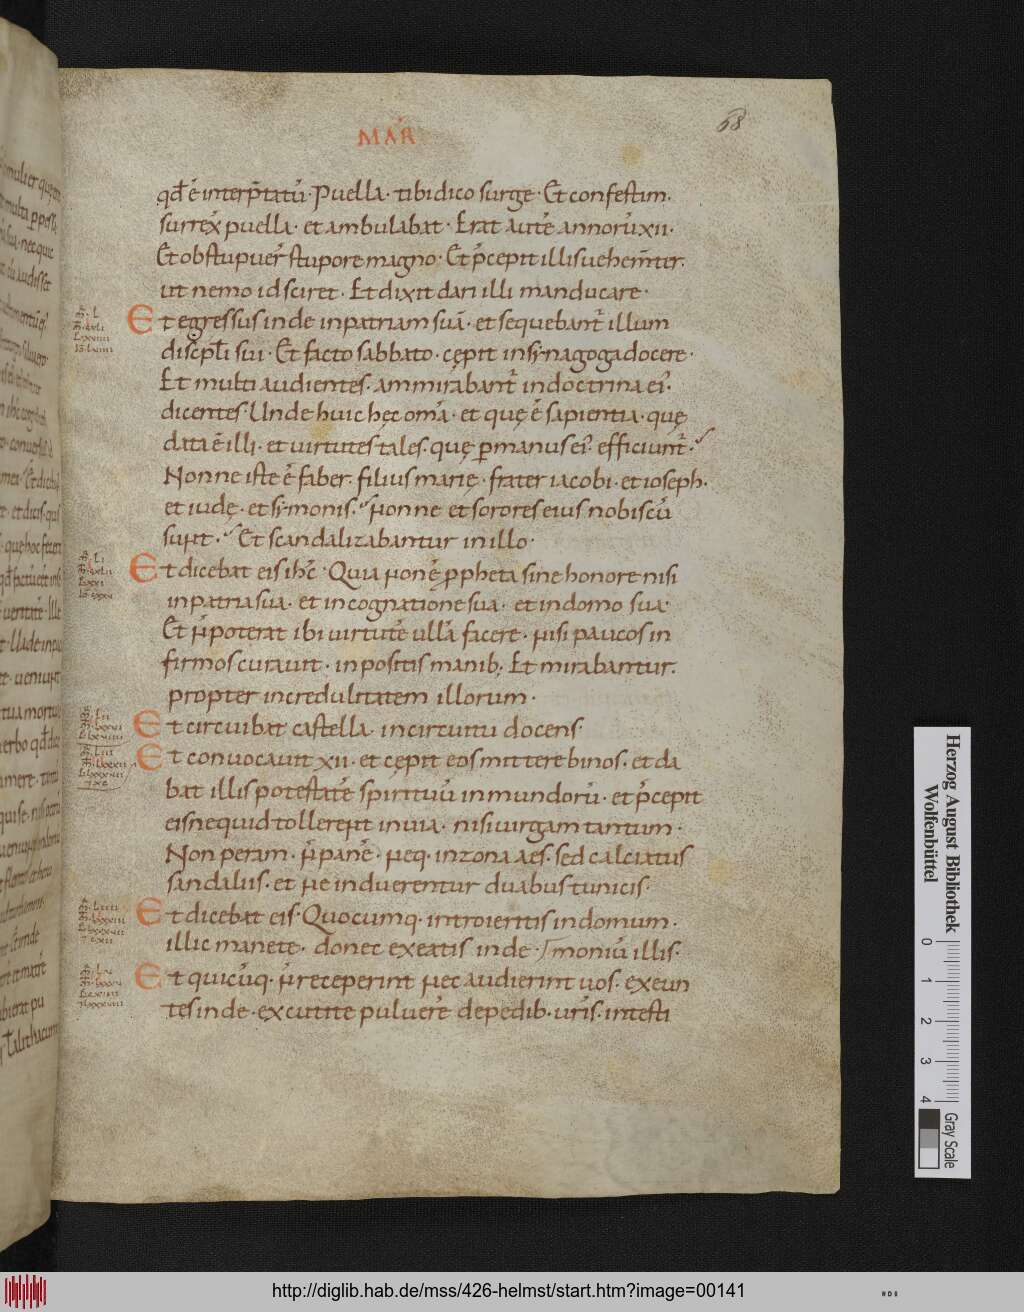 MAR
68
qđ ē interp̄tatū · Puella · tibi dico surge · Et confestim ·
surrex̄ puella · et ambulabat · Erat autē annorū xii ·
Et obstupuer̄ stupore magno · Et p̄cepit illis uehem̄ter ·
ut nemo id sciret · Et dixit dari illi manducare ·
Et egressus inde in patriam suā · et sequebant̄ illum
discipl̄i sui · Et facto sabbato · cępit in synagoga docere ·
Et multi audientes · ammirabant̄ in doctrina ei᾽ ·
dicentes · Unde huic hęc om̄a · et quę ē sapientia · quę
data ē illi · et uirtutes tales · quę ꝑ manus ei᾽ efficiunt̄ ·
Nonne iste ē faber · filius marię · frater iacobi · et ioseph ·
et iudę · et symonis · nonne et sorores eius nobiscū
sunt · Et scandalizabantur in illo ·
Et dicebat eis ihc̄ · Quia non ē ppheta sine honore nisi
in patria sua · et in cognatione sua · et in domo sua ·
Et n̄ poterat ibi uirtutē ullā facere · nisi paucos in
firmos curauit · inpositis manib; Et mirabantur ·
propter incredulitatem illorum ·
Et circuibat castella in circuitu docens
Et conuocauit xii · et cępit eos mittere binos · et da
bat illis potestatē spirituū inmundorū · et p̄cepit
eis ne quid tollerent in uia · nisi uirgam tantum ·
Non peram · n̄ panē · neq · in zona aes · sed calciatus
sandaliis · et ne induerentur duabus tunicis ·
Et dicebat eis · Quocumq · introieritis in domum ·
illic manete · donec exeatis inde · moniū illis ·
Et quicūq · n̄ receperint nec audierint uos · exeun
tes inde · excutite puluerē de pedib · ur̄is · in testi
Herzog August Bibliothek
Wolfenbüttel
0 1 2 3 4
Gray Scale
http://diglib.hab.de/mss/426-helmst/start.htm?image=00141